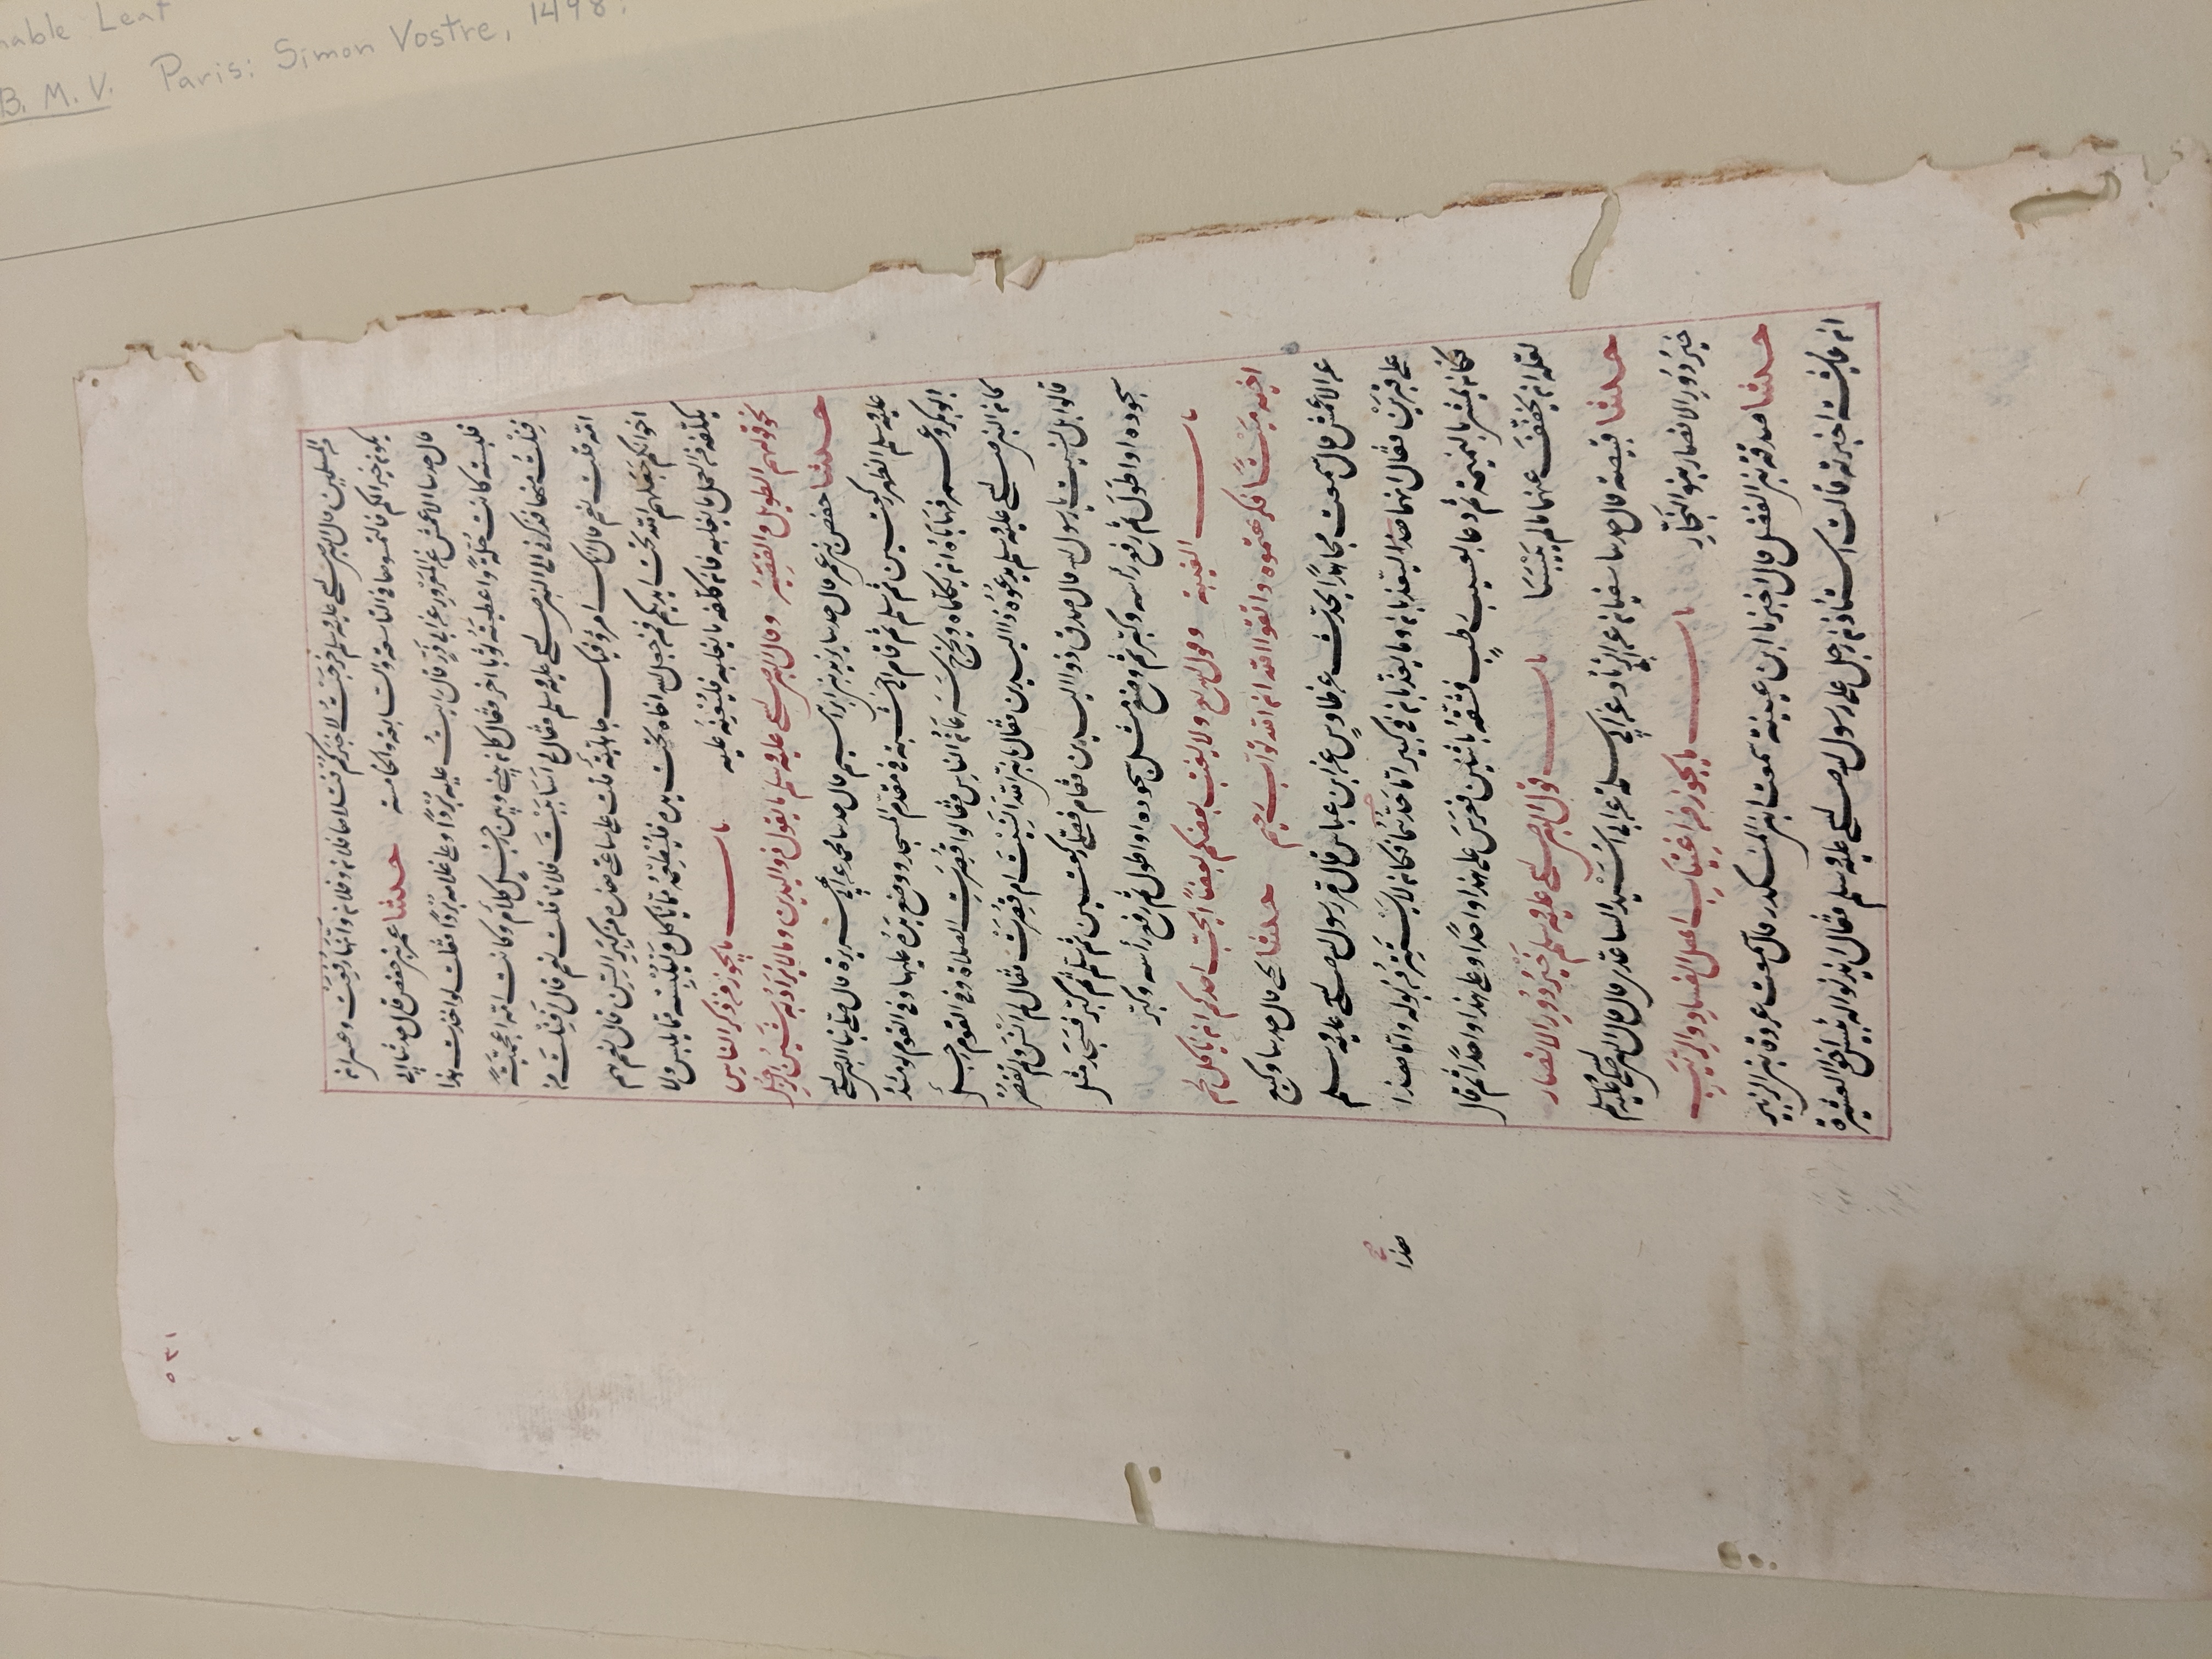 ٥٣١
من المسلمين قال النبي صلى الله عليه وسلم خرجت لاخبركم فتلاحا فلان وفلان وانها رفعت وعسى ان
يكون خيرا لكم فالتمسوها في التاسعة والسابعة والخامسة حدثنا عمر بن حفص قال حدثنا ابي
قال حدثنا الاعمش عن المعرور عن ابي ذر قال رايت عليه بردا وعلى غلامه بردا فقلت لو اخذت هذا
فلبسته كانت حلة واعطيته ثوبا اخر فقال كان بيني وبين رجل كلام وكانت امه اعجمية
فنلت منها فذكرني الى النبي صلى الله عليه وسلم فقال لي اساببت فلانا قلت نعم قال افنلت من
امه قلت نعم قال انك امرؤ فيك جاهلية قلت على ساعتي هذه من كبر السن قال نعم هم
اخوانكم جعلهم الله تحت ايديكم فمن جعل الله اخاه تحت يده فليطعمه مما ياكل وليلبسه مما يلبس ولا
يكلفه من العمل ما يغلبه فان كلفه ما يغلبه فليعنه عليه باب ما يجوز من ذكر الناس
نحو قولهم الطويل والقصير وقال النبي صلى الله عليه وسلم ما يقول ذو اليدين وما لا يراد به شين الرجل
حدثنا حفص بن عمر قال حدثنا يزيد بن ابراهيم قال حدثنا محمد عن ابي هريرة قال صلى بنا النبي صلى الله
عليه وسلم الظهر ركعتين ثم سلم ثم قام الى خشبة في مقدم المسجد ووضع يده عليها وفي القوم يومئذ
ابو بكر وعمر فهاباه ان يكلماه ويخرج سرعان الناس فقالوا قصرت الصلاة وفي القوم رجل
كان النبي صلى الله عليه وسلم يدعوه ذا اليدين فقال يا نبي الله انسيت ام قصرت فقال لم انس ولم تقصر
قالوا بل نسيت يا رسول الله قال صدق ذو اليدين فقام فصلى ركعتين ثم سلم ثم كبر فسجد مثل
سجوده او اطول ثم رفع رأسه وكبر ثم وضع مثل سجوده او اطول ثم رفع رأسه وكبر
باب الغيبة وقول الله تع ولا يغتب بعضكم بعضا ايحب احدكم ان ياكل لحم
اخيه ميتا فكرهتموه واتقوا الله ان الله تواب رحيم حدثنا يحيى قال حدثنا وكيع
عن الاعمش قال سمعت مجاهدا يحدث عن طاوس عن ابن عباس قال مر رسول الله صلى الله عليه وسلم
على قبرين فقال انهما هذا ليعذبان وما يعذبان في كبير اما احدهما فكان لا يستتر من بوله واما هذا
هذا
فكان يمشي بالنميمة ثم دعا بعسيب رطب فشقه باثنين فغرس على هذا واحدا وعلى هذا واحدا ثم قال
لعله ان يخفف عنهما ما لم ييبسا باب قول النبي صلى الله عليه وسلم خير دور الانصار
حدثنا قبيصة قال حدثنا سفيان عن ابي الزناد عن ابي سلمة عن ابي اسيد الساعدي قال قال النبي صلى الله عليه وسلم
خير دور الانصار بنو النجار باب ما يجوز من اغتياب اهل الفساد والريب
حدثنا صدقة بن الفضل قال اخبرنا ابن عيينة سمعت ابن المنكدر قال سمعت عروة بن الزبير
ان عايشة اخبرته قالت استأذن رجل على رسول الله صلى الله عليه وسلم فقال ايذنوا له بئيس اخو العشيرة
B. M. V. Paris: Simon Vostre, 1498.